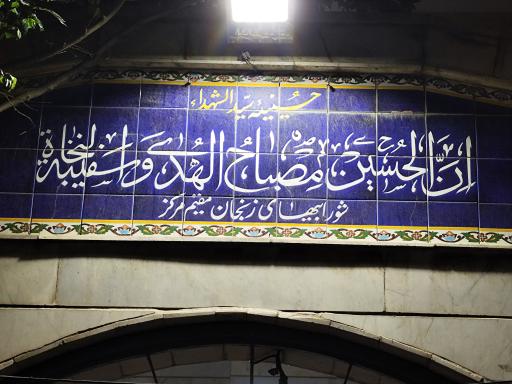 حسینیه سیدالشهداء
اِنَّ الحُسَین مِصباحُ الهُدی وَ سَفینَةُ النَجاة
شورابیهای زنجان مقیم مرکز